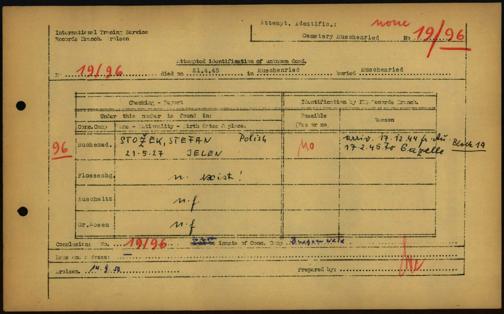 International Tracing Service
Records Branch. Arolsen
Attempt. Identific.: none
Cemetery Muschenried No 19/96
Attempted identification of unknown dead.
No 19/96 died on 21.4.45 in Muschenried buried Muschenried
Checking - Report
Identification by Records Branch.
Under this number is found in:
Possible
Yes or no
Reason
Conc.Camp Name - Nationality - Birth date & place.
96
Buchenwd. STOŻEK, STEFAN Polish
21-9-27 JELEN
No
arriv. 17.12.44
17.2.45 to
Block 19
Flossenbg. n. exist!
Auschwitz n.f
Gr.Rosen n.f
Conclusion: No. 19/96 inmate of Conc. Camp
Arolsen
Prepared by: